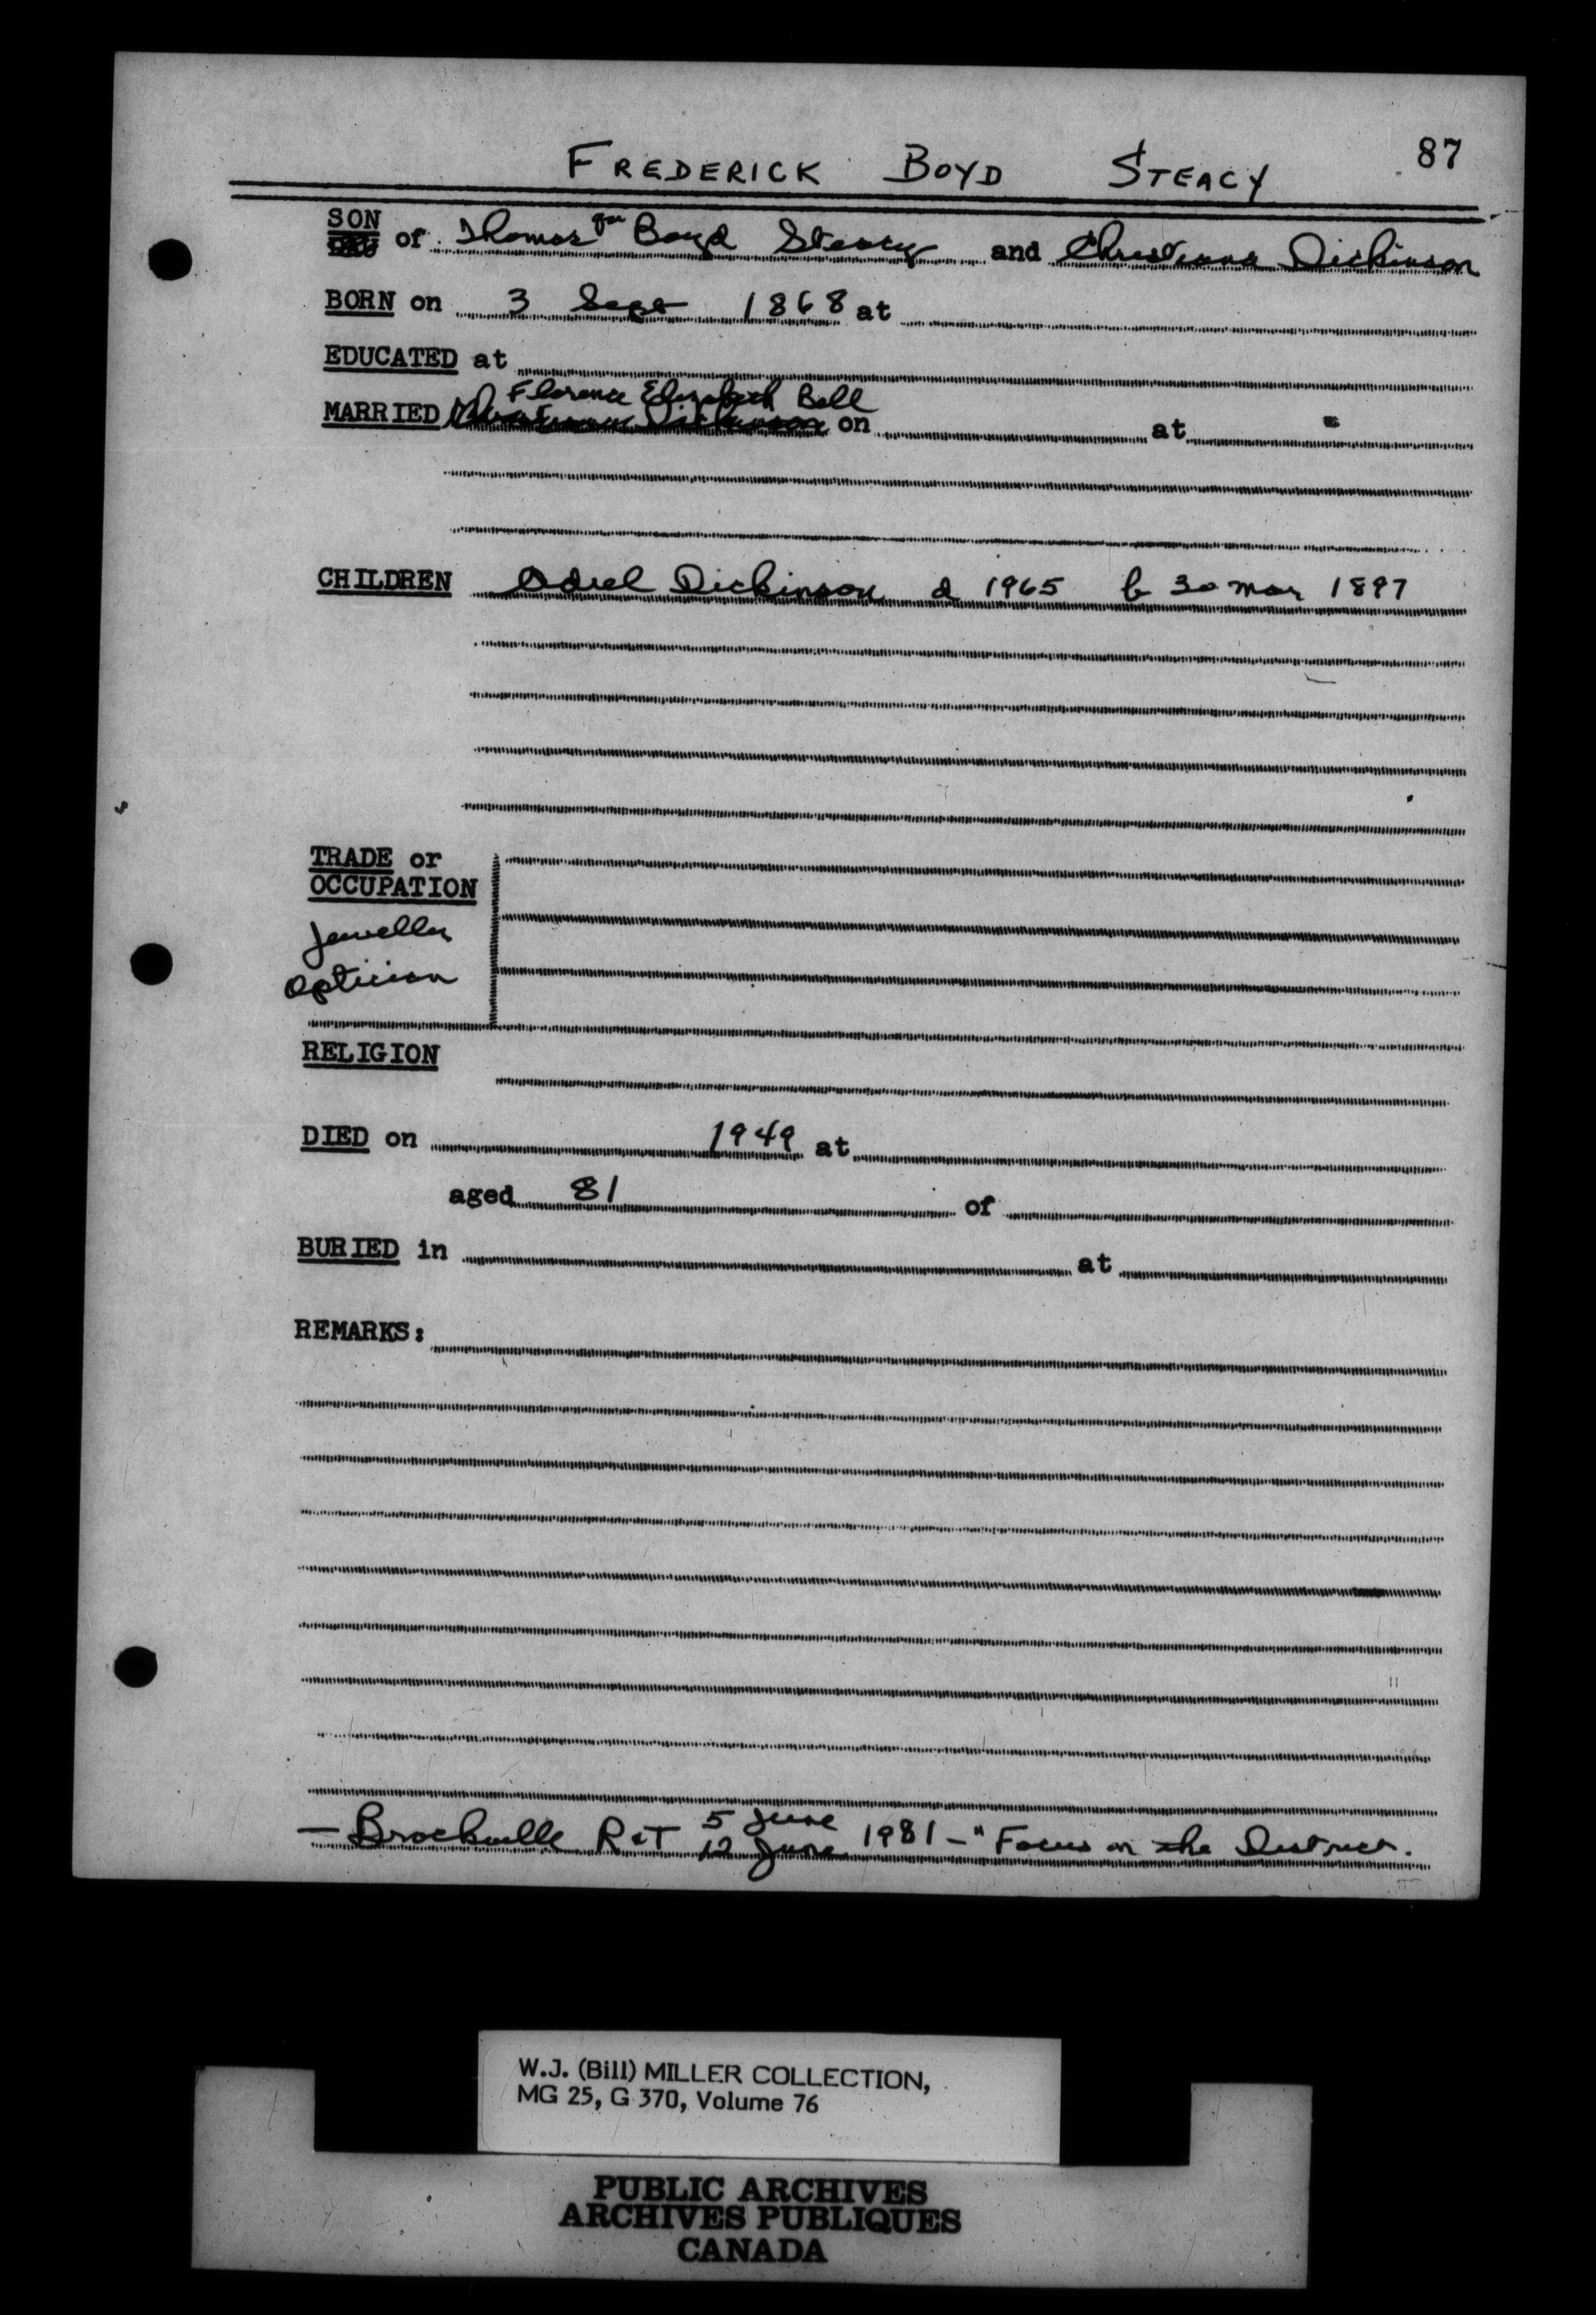 87
FREDERICK BOYD STEACY
SON of Thomas Jr Boyd Steacy and Christiana Dickinson
BORN on 3 Sept 1868 at
EDUCATED at
Florence Elizabeth Bell
MARRIED Christiana Dickinson on at
CHILDREN Odiel Dickinson d 1965 b 30 Mar 1897
TRADE or
OCCUPATION
Jeweller
Optician
RELIGION
DIED on 1949 at
aged 81 of
BURIED in at
REMARKS:
5 June
— Brockville R&T 12 June 1981 - "Focus on the District.
W.J. (Bill) MILLER COLLECTION,
MG 25, G 370, Volume 76
PUBLIC ARCHIVES
ARCHIVES PUBLIQUES
CANADA